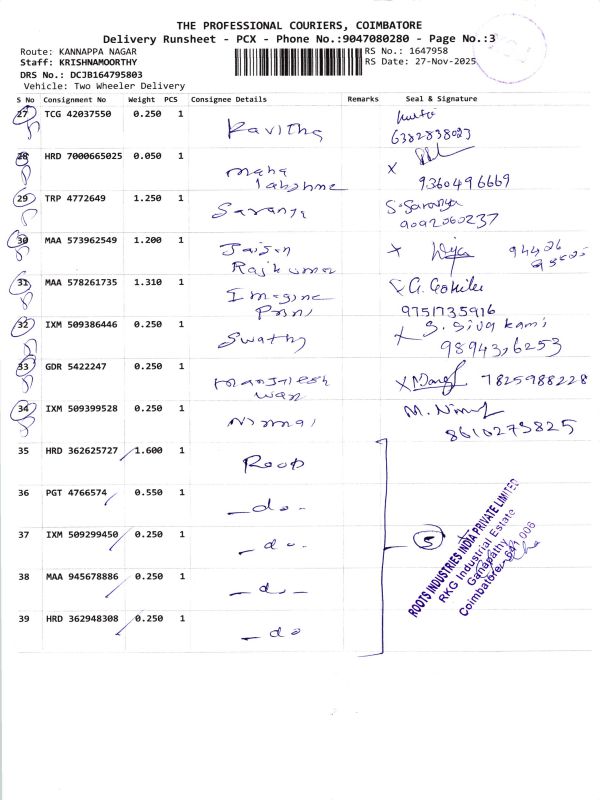 THE PROFESSIONAL COURIERS, COIMBATORE
Delivery Runsheet - PCX - Phone No.:9047080280 - Page No.:3
Route: KANNAPPA NAGAR
RS No.: 1647958
Staff: KRISHNAMOORTHY
RS Date: 27-Nov-2025
DRS No.: DCJB164795803
Vehicle: Two Wheeler Delivery
S No Consignment No Weight PCS Consignee Details Remarks Seal & Signature
27 TCG 42037550 0.250 1 Kavitha
6382838023
28 HRD 7000665025 0.050 1 maha
9360496669
29 TRP 4772649 1.250 1 Saranya S. Saranya
9092060237
30 MAA 573962549 1.200 1 Jaison X
Rajkumar
31 MAA 578261735 1.310 1 Imagine G. Gokila
Print 9751735916
32 IXM 509386446 0.250 1 Swathy X S. Sivakami
33 GDR 5422247 0.250 1 X 7825988228
34 IXM 509399528 0.250 1 Nirmal M. Nirmal
8610273825
35 HRD 362625727 1.600 1 Roop
36 PGT 4766574 0.550 1 - do -
37 IXM 509299450 0.250 1 - do -
38 MAA 945678886 0.250 1 - do -
39 HRD 362948308 0.250 1 - do
5
ROOTS INDUSTRIES INDIA PRIVATE LIMITED
RKG Industrial Estate
Ganapathy
Coimbatore - 641 006